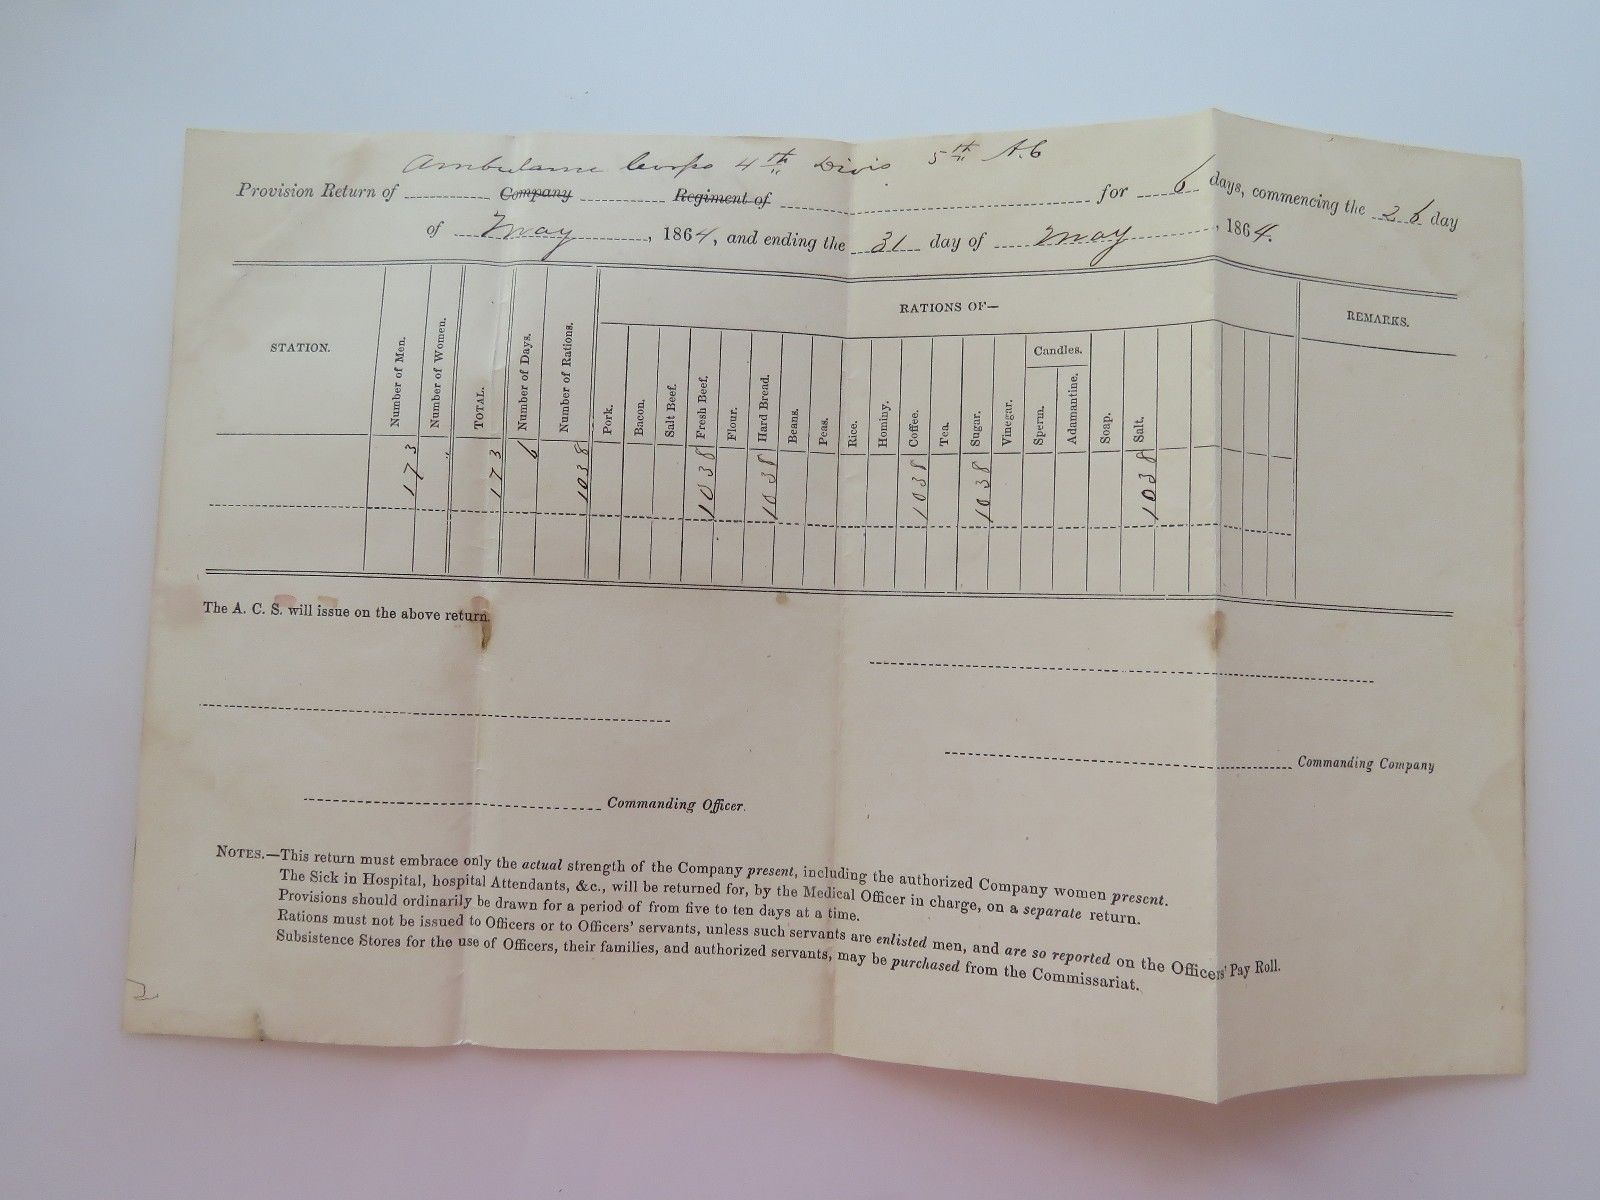 Ambulance Corps 4th Divis 5th A.C
Provision Return of Company Regiment of for 6 days, commencing the 26 day
of May, 1864, and ending the 31 day of May, 1864.
STATION.
Number of Men.
Number of Women.
TOTAL.
Number of Days.
Number of Rations.
RATIONS OF—
Pork.
Bacon.
Salt Beef.
Fresh Beef.
Flour.
Hard Bread.
Beans.
Peas.
Rice.
Hominy.
Coffee.
Tea.
Sugar.
Vinegar.
Candles.
Sperm.
Adamantine.
Soap.
Salt.
REMARKS.
173 " 173 6 1038 1038 1038 1038 1038 1038
The A. C. S. will issue on the above return.
Commanding Company
Commanding Officer.
NOTES.—This return must embrace only the actual strength of the Company present, including the authorized Company women present.
The Sick in Hospital, hospital Attendants, &c., will be returned for, by the Medical Officer in charge, on a separate return.
Provisions should ordinarily be drawn for a period of from five to ten days at a time.
Rations must not be issued to Officers or to Officers' servants, unless such servants are enlisted men, and are so reported on the Officers' Pay Roll.
Subsistence Stores for the use of Officers, their families, and authorized servants, may be purchased from the Commissariat.
2